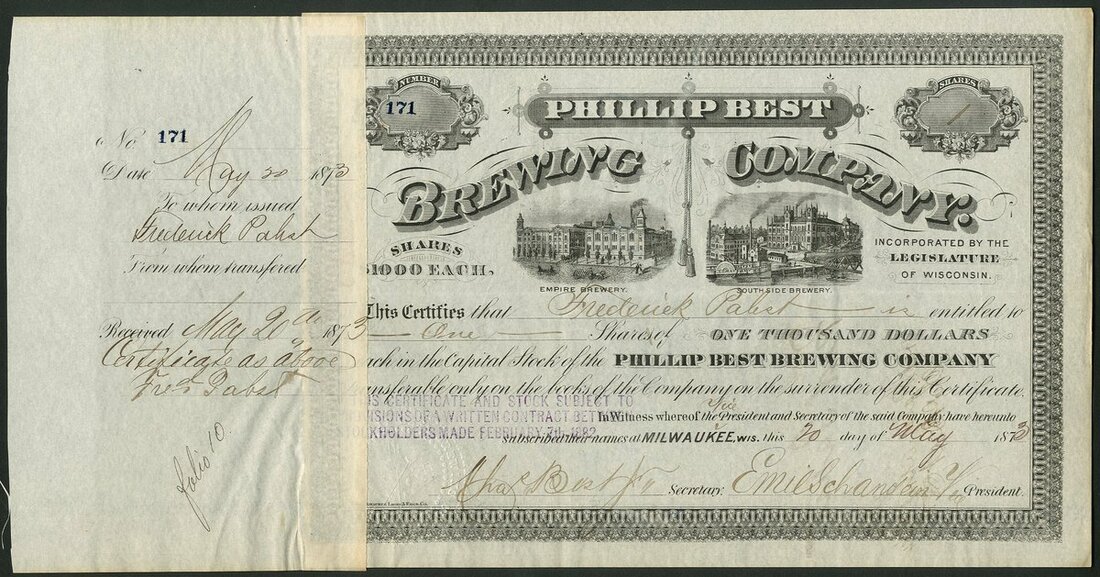 No. 171
Date May 20 1873
To whom issued
Frederick Pabst
From whom transfered
Received May 20th 1873
Certificate as above
Fred Pabst
folio 10.
NUMBER
171
SHARES
1
PHILLIP BEST
BREWING COMPANY.
SHARES
$1000 EACH.
EMPIRE BREWERY.
SOUTH SIDE BREWERY.
INCORPORATED BY THE
LEGISLATURE
OF WISCONSIN.
This Certifies that Frederick Pabst is entitled to
One Shares of ONE THOUSAND DOLLARS
each in the Capital Stock of the PHILLIP BEST BREWING COMPANY
transferable only on the books of the Company on the surrender of this Certificate.
THIS CERTIFICATE AND STOCK SUBJECT TO
PROVISIONS OF A WRITTEN CONTRACT
STOCKHOLDERS MADE FEBRUARY 7th 1882
In Witness whereof the Vice President and Secretary of the said Company have hereunto
subscribed their names at MILWAUKEE, WIS. this 20 day of May 1873
Chas Best Jr Secretary. Emil Schandein V/Pr President.